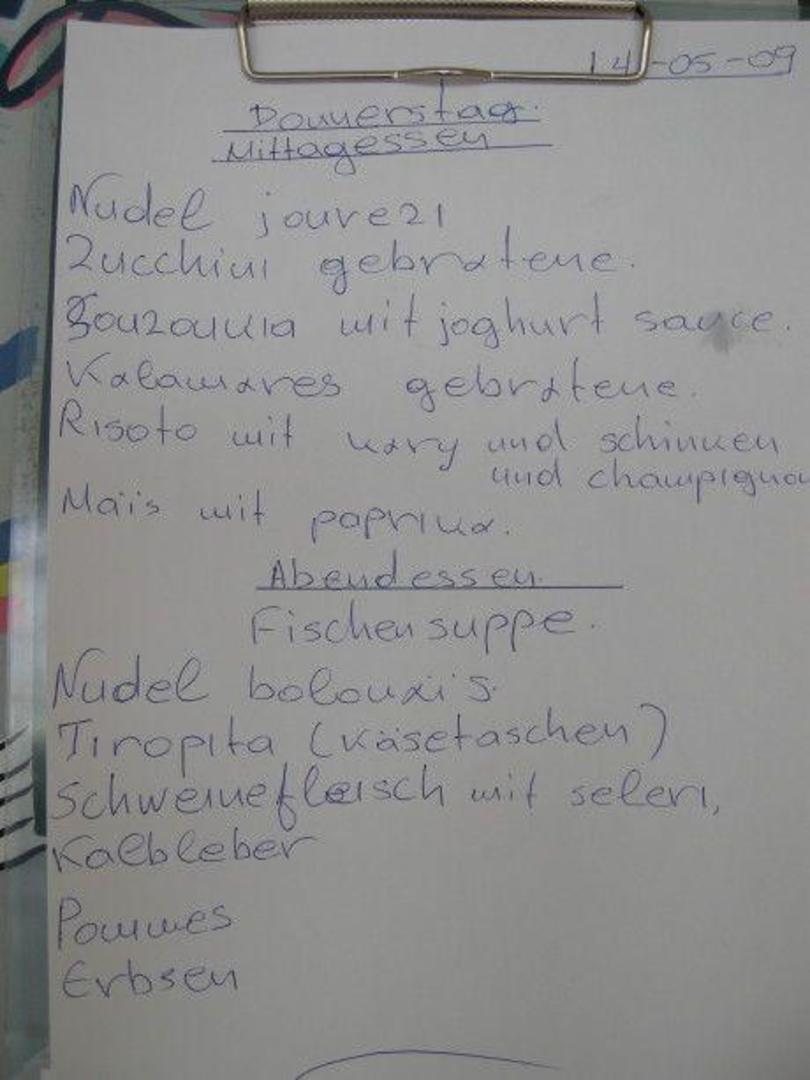 14-05-09
Donnerstag.
Mittagessen
Nudel jouvezi
Zucchini gebratene.
Souzoukia mit joghurt sauce.
Kalamares gebratene.
Risoto mit kary und schinken
und champigno
Maïs mit paprika.
Abendessen
Fischensuppe.
Nudel bolonais.
Tiropita (Käsetaschen)
Schweinefleisch mit seleri,
Kalbleber
Pommes
Erbsen